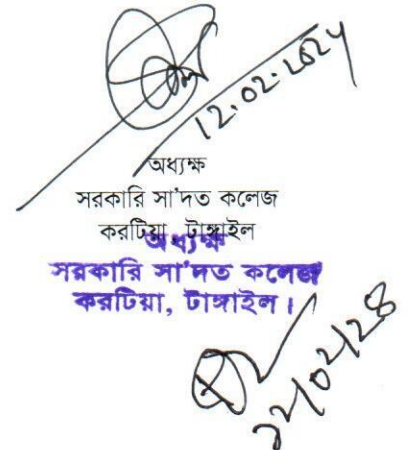 12.02.2024
অধ্যক্ষ
সরকারি সা'দত কলেজ
করটিয়া, টাঙ্গাইল
অধ্যক্ষ
সরকারি সা'দত কলেজ
করটিয়া, টাঙ্গাইল।